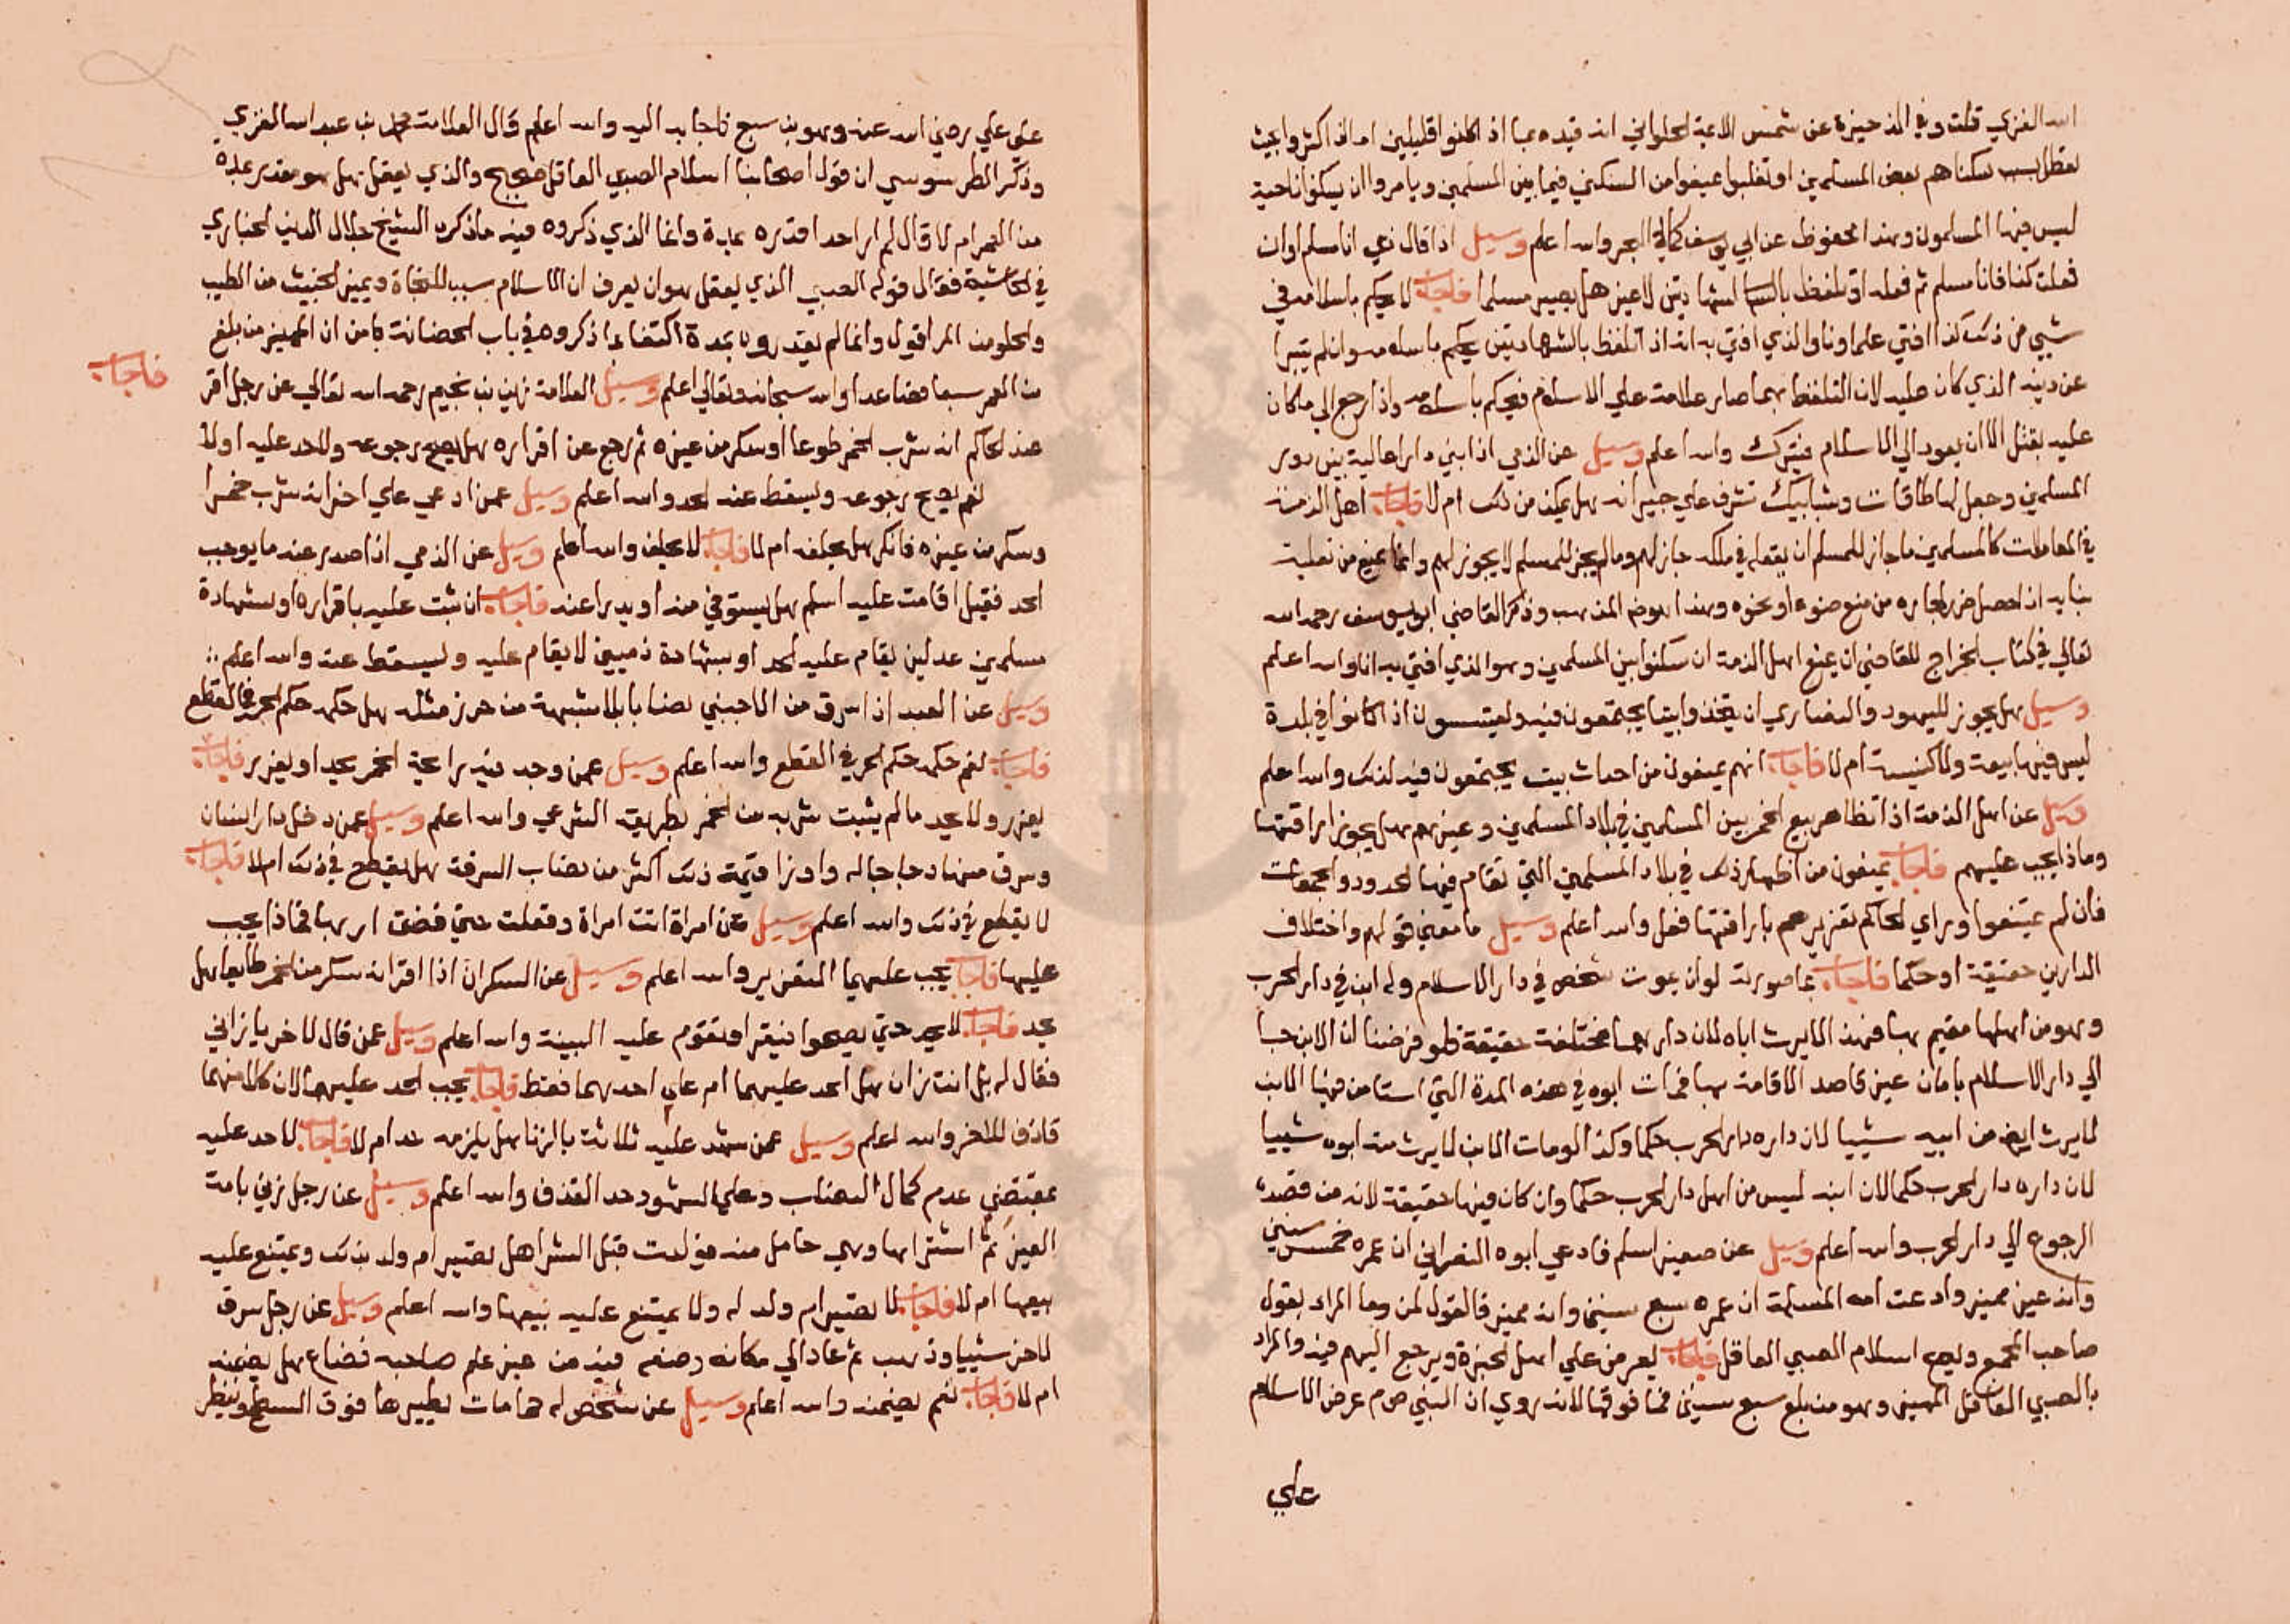 الله الغزي قلت وفي الذخيرة عن شمس الائمة الحلواني انه قيده بما اذا كانوا قليلين اما اذا كثروا بحيث
تعطل بسبب سكناهم بعض المسلمين او تغلبوا عنعوا من السكني فيما بين المسلمين ويامروا ان يسكنوا ناحية
ليس فيها المسلمون وهذا محفوظ عن ابي يوسف كما في البحر والله اعلم وسيل اذا قال ذمي انا مسلم او ان
فعلت كذا فانا مسلم ثم فعله او تلفظ بالشهادتين لا غير هل يصير مسلما فاجاب لا يحكم باسلامه في
شيي من ذلك كذا افتي علماونا والذي افتي به انه اذا تلفظ بالشهادتين يحكم باسلامه وان لم يتبرا
عن دينه الذي كان عليه لان التلفظ بهما صار علامة علي الاسلام فيحكم باسلامه واذا رجع الي ما كان
عليه يقتل الا ان يعود الي الاسلام فيترك والله اعلم وسيل عن الذمي اذا بني دارا عالية بين دور
المسلمين وجعل لها طاقات وشبابيك تشرف علي جيرانه هل يمكن من ذلك ام لا فاجاب اهل الذمة
في المعاملات كالمسلمين ما جاز للمسلم ان يفعله في ملكه جاز لهم وما لم يجز للمسلم لا يجوز لهم وانما يمنع من تعلية
بنايه اذا حصل ضرر لجاره من منع ضوء او نحوه وهذا هو المذهب وذكر القاضي ابو يوسف رحمه الله
تعالي في كتاب الخراج للقاضي ان يمنع اهل الذمة ان سكنوا بين المسلمين وهو الذي افتي به انا والله اعلم
وسيل هل يجوز لليهود والنصاري ان يتخذوا بيتا يجتمعون فيه اذا كانوا في بلدة
ليس فيها بيعة ولا كنيسة ام لا فاجاب انهم يمنعون من احداث بيت يجتمعون فيه لذلك والله اعلم
وسيل عن اهل الذمة اذا تظاهر بيع الخمر بين المسلمين في بلاد المسلمين وغيرهم هل يجوز اراقتها
وماذا يجب عليهم فاجاب يمنعون من اظهار ذلك في بلاد المسلمين التي تقام فيها الحدود والجمعات
فان لم يمتنعوا وراي الحاكم تعزيرهم باراقتها فعل والله اعلم وسيل ما معني قولهم واختلاف
الدارين حقيقة او حكما فاجاب بما صورته لو ان يموت شخص في دار الاسلام وله ابن في دار الحرب
وهو من اهلها مقيم بها فهذا لا يرث اباه لان دارهما مختلفة حقيقة فلو فرضنا ان الابن جا
الي دار الاسلام بامان غير قاصد الاقامة بها فمات ابوه في هذه المدة التي استامن فيها الابن
لا يرث ايضا من ابيه شييا لان داره دار الحرب حكما وكذا لو مات الابن لا يرث منه ابوه شييا
لان داره دار الحرب حكما لان ابنه ليس من اهل دار الحرب حكما وان كان فيها حقيقة لانه من قصده
الرجوع الي دار الحرب والله اعلم وسيل عن صغير اسلم فادعي ابوه النصراني ان عمره خمس سنين
وانه غير مميز وادعت امه المسلمة ان عمره سبع سنين وانه مميز فالقول لمن وما المراد بقول
صاحب المجمع ويصح اسلام الصبي العاقل فاجاب يعرض علي اهل الخبرة ويرجع اليهم فيه والمراد
بالصبي العاقل المميز وهو من بلغ سبع سنين فما فوقها لانه روي ان النبي ص م عرض الاسلام
علي
علي علي رضي الله عنه وهو ابن سبع فاجابه اليه والله اعلم وقال العلامة محمد بن عبد الله الغزي
وذكر الطرسوسي ان قول اصحابنا اسلام الصبي العاقل صحيح والذي يعقل هل هو مقدر بمدة
من العمر ام لا قال لم ار احدا قدره بمدة وانما الذي ذكروه فيه ما ذكره الشيخ جلال الدين الخبازي
في الحاشية فقال قوله الصبي الذي يعقل هو ان يعرف ان الاسلام سبب للنجاة ويميز الخبيث من الطيب
والحلو من المر اقول وانما لم يقدروه بمدة اكتفا بما ذكروه في باب الحضانة كما من ان المميز من بلغ
من العمر سبعا فصاعدا والله سبحانه وتعالي اعلم وسيل العلامة زين بن نجيم رحمه الله تعالي عن رجل اقر
عند الحاكم انه شرب الخمر طوعا او سكر من غيره ثم رجع عن اقراره هل يصح رجوعه ولا حد عليه اولا
فاجاب
نعم يصح رجوعه ويسقط عنه الحد والله اعلم وسيل عمن ادعي علي اخر انه شرب خمرا
وسكر من غيره فانكر هل يحلف ام لا فاجاب لا يحلف والله اعلم وسيل عن الذمي اذا صدر عنه ما يوجب
الحد فقبل اقامته عليه اسلم هل يستوفي منه او يدرا عنه فاجاب ان ثبت عليه باقراره او بشهادة
مسلمين عدلين يقام عليه الحد او بشهادة ذميين لا يقام عليه ويسقط عنه والله اعلم
وسيل عن العبد اذا سرق من الاجنبي نصابا بلا شبهة من حرز مثله هل حكمه حكم الحر في القطع
فاجاب نعم حكمه حكم الحر في القطع والله اعلم وسيل عمن وجد فيه رايحة الخمر يحد او يعزر فاجاب
يعزر ولا يحد ما لم يثبت شربه من الخمر بطريقه الشرعي والله اعلم وسيل عمن دخل دار انسان
وسرق منها دجاجا له واوزا قيمة ذلك اكثر من نصاب السرقة هل يقطع في ذلك ام لا فاجاب
لا يقطع في ذلك والله اعلم وسيل عن امراة اتت امراة وفعلت حتي قضت اربها فماذا يجب
عليها فاجاب يجب عليهما التعزير والله اعلم وسيل عن السكران اذا اقر انه سكر من الخمر طايعا هل
يحد فاجاب لا يحد حتي يصحوا فيقر او تقوم عليه البينة والله اعلم وسيل عمن قال لاخر يا زاني
فقال له بل انت زان هل الحد عليهما ام علي احدهما فقط فاجاب يجب الحد عليهما لان كلا منهما
قاذف للاخر والله اعلم وسيل عمن شهد عليه ثلاثة بالزنا هل يلزمه حد ام لا فاجاب لا حد عليه
بمقتضي عدم كمال النصاب وعلي الشهود حد القذف والله اعلم وسيل عن رجل زني بامة
الغير ثم اشتراها وهي حامل منه فولدت قبل الشرا هل تصير ام ولد بذلك ويمتنع عليه
بيعها ام لا فاجاب لا تصير ام ولد له ولا يمتنع عليه بيعها والله اعلم وسيل عن رجل سرق
لاخر شييا وذهب ثم عاد الي مكانه وضعه فيه من غير علم صاحبه فضاع هل يضمنه
ام لا فاجاب نعم يضمنه والله اعلم وسيل عن شخص له حمامات يطيرها فوق السطح وينظر